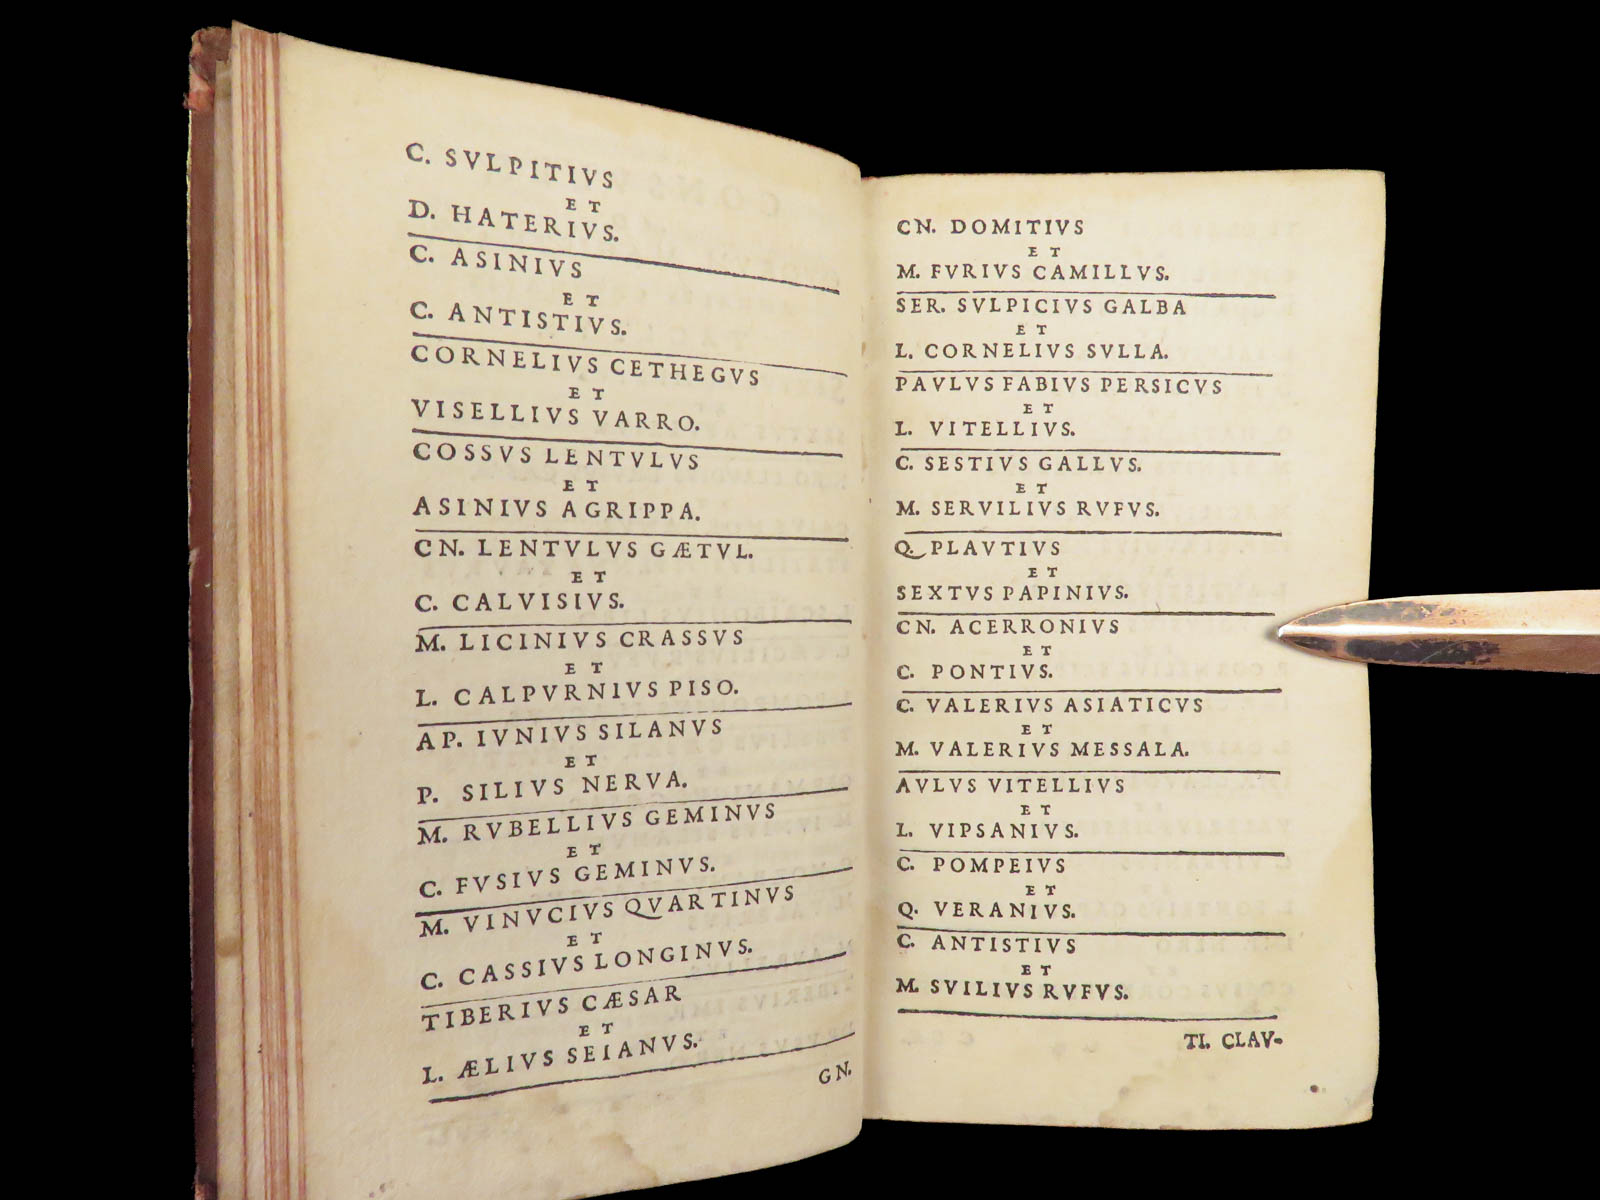 C. SVLPITIVS
ET
D. HATERIVS.
C. ASINIVS
ET
C. ANTISTIVS.
CORNELIVS CETHEGVS
ET
VISELLIVS VARRO.
COSSVS LENTVLVS
ET
ASINIVS AGRIPPA.
CN. LENTVLVS GÆTVL.
ET
C. CALVISIVS.
M. LICINIVS CRASSVS
ET
L. CALPVRNIVS PISO.
AP. IVNIVS SILANVS
ET
P. SILIVS NERVA.
M. RVBELLIVS GEMINVS
ET
C. FVSIVS GEMINVS.
M. VINVCIVS QVARTINVS
ET
C. CASSIVS LONGINVS.
TIBERIVS CÆSAR
ET
L. ÆLIVS SEIANVS.
GN.
CN. DOMITIVS
ET
M. FVRIVS CAMILLVS.
SER. SVLPICIVS GALBA
ET
L. CORNELIVS SVLLA.
PAVLVS FABIVS PERSICVS
ET
L. VITELLIVS.
C. SESTIVS GALLVS.
ET
M. SERVILIVS RVFVS.
Q. PLAVTIVS
ET
SEXTVS PAPINIVS.
CN. ACERRONIVS
ET
C. PONTIVS.
C. VALERIVS ASIATICVS
ET
M. VALERIVS MESSALA.
AVLVS VITELLIVS
ET
L. VIPSANIVS.
C. POMPEIVS
ET
Q. VERANIVS.
C. ANTISTIVS
ET
M. SVILIVS RVFVS.
TI. CLAV-